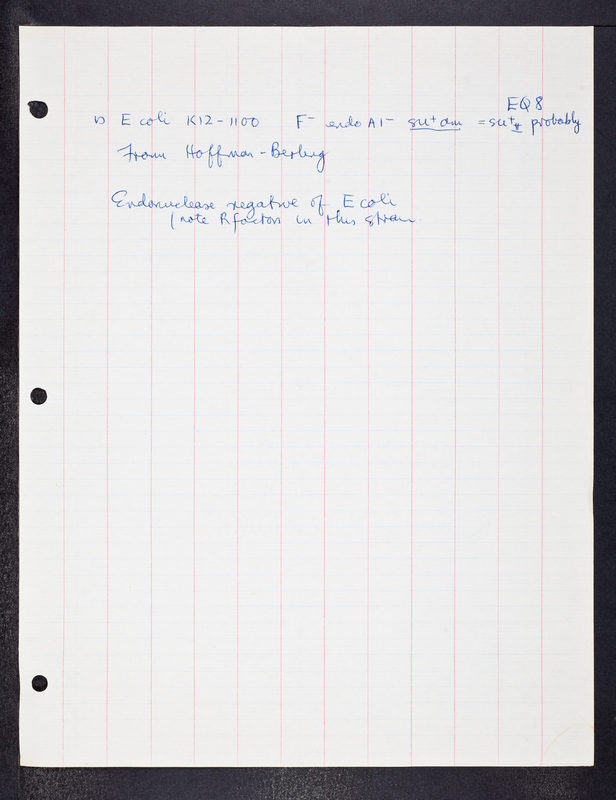 EQ8
1) E coli K12-1100 F⁻ endo A1⁻ su⁺am = su⁺ probably
From Hoffman-Berling
Endonuclease negative of E coli
(note R factors in this strain.